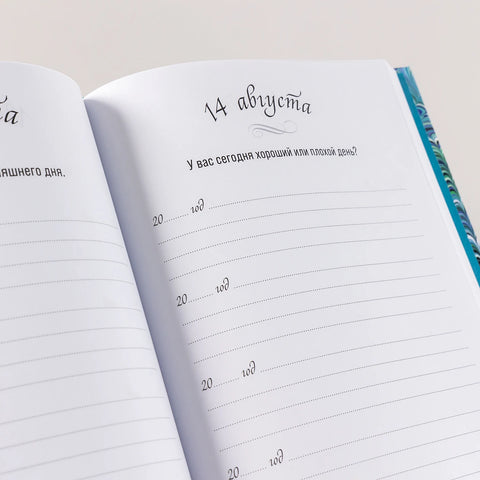 та
яшнего дня.
14 августа
У вас сегодня хороший или плохой день?
20 ...... год
20 ...... год
20 ...... год
20 ...... год